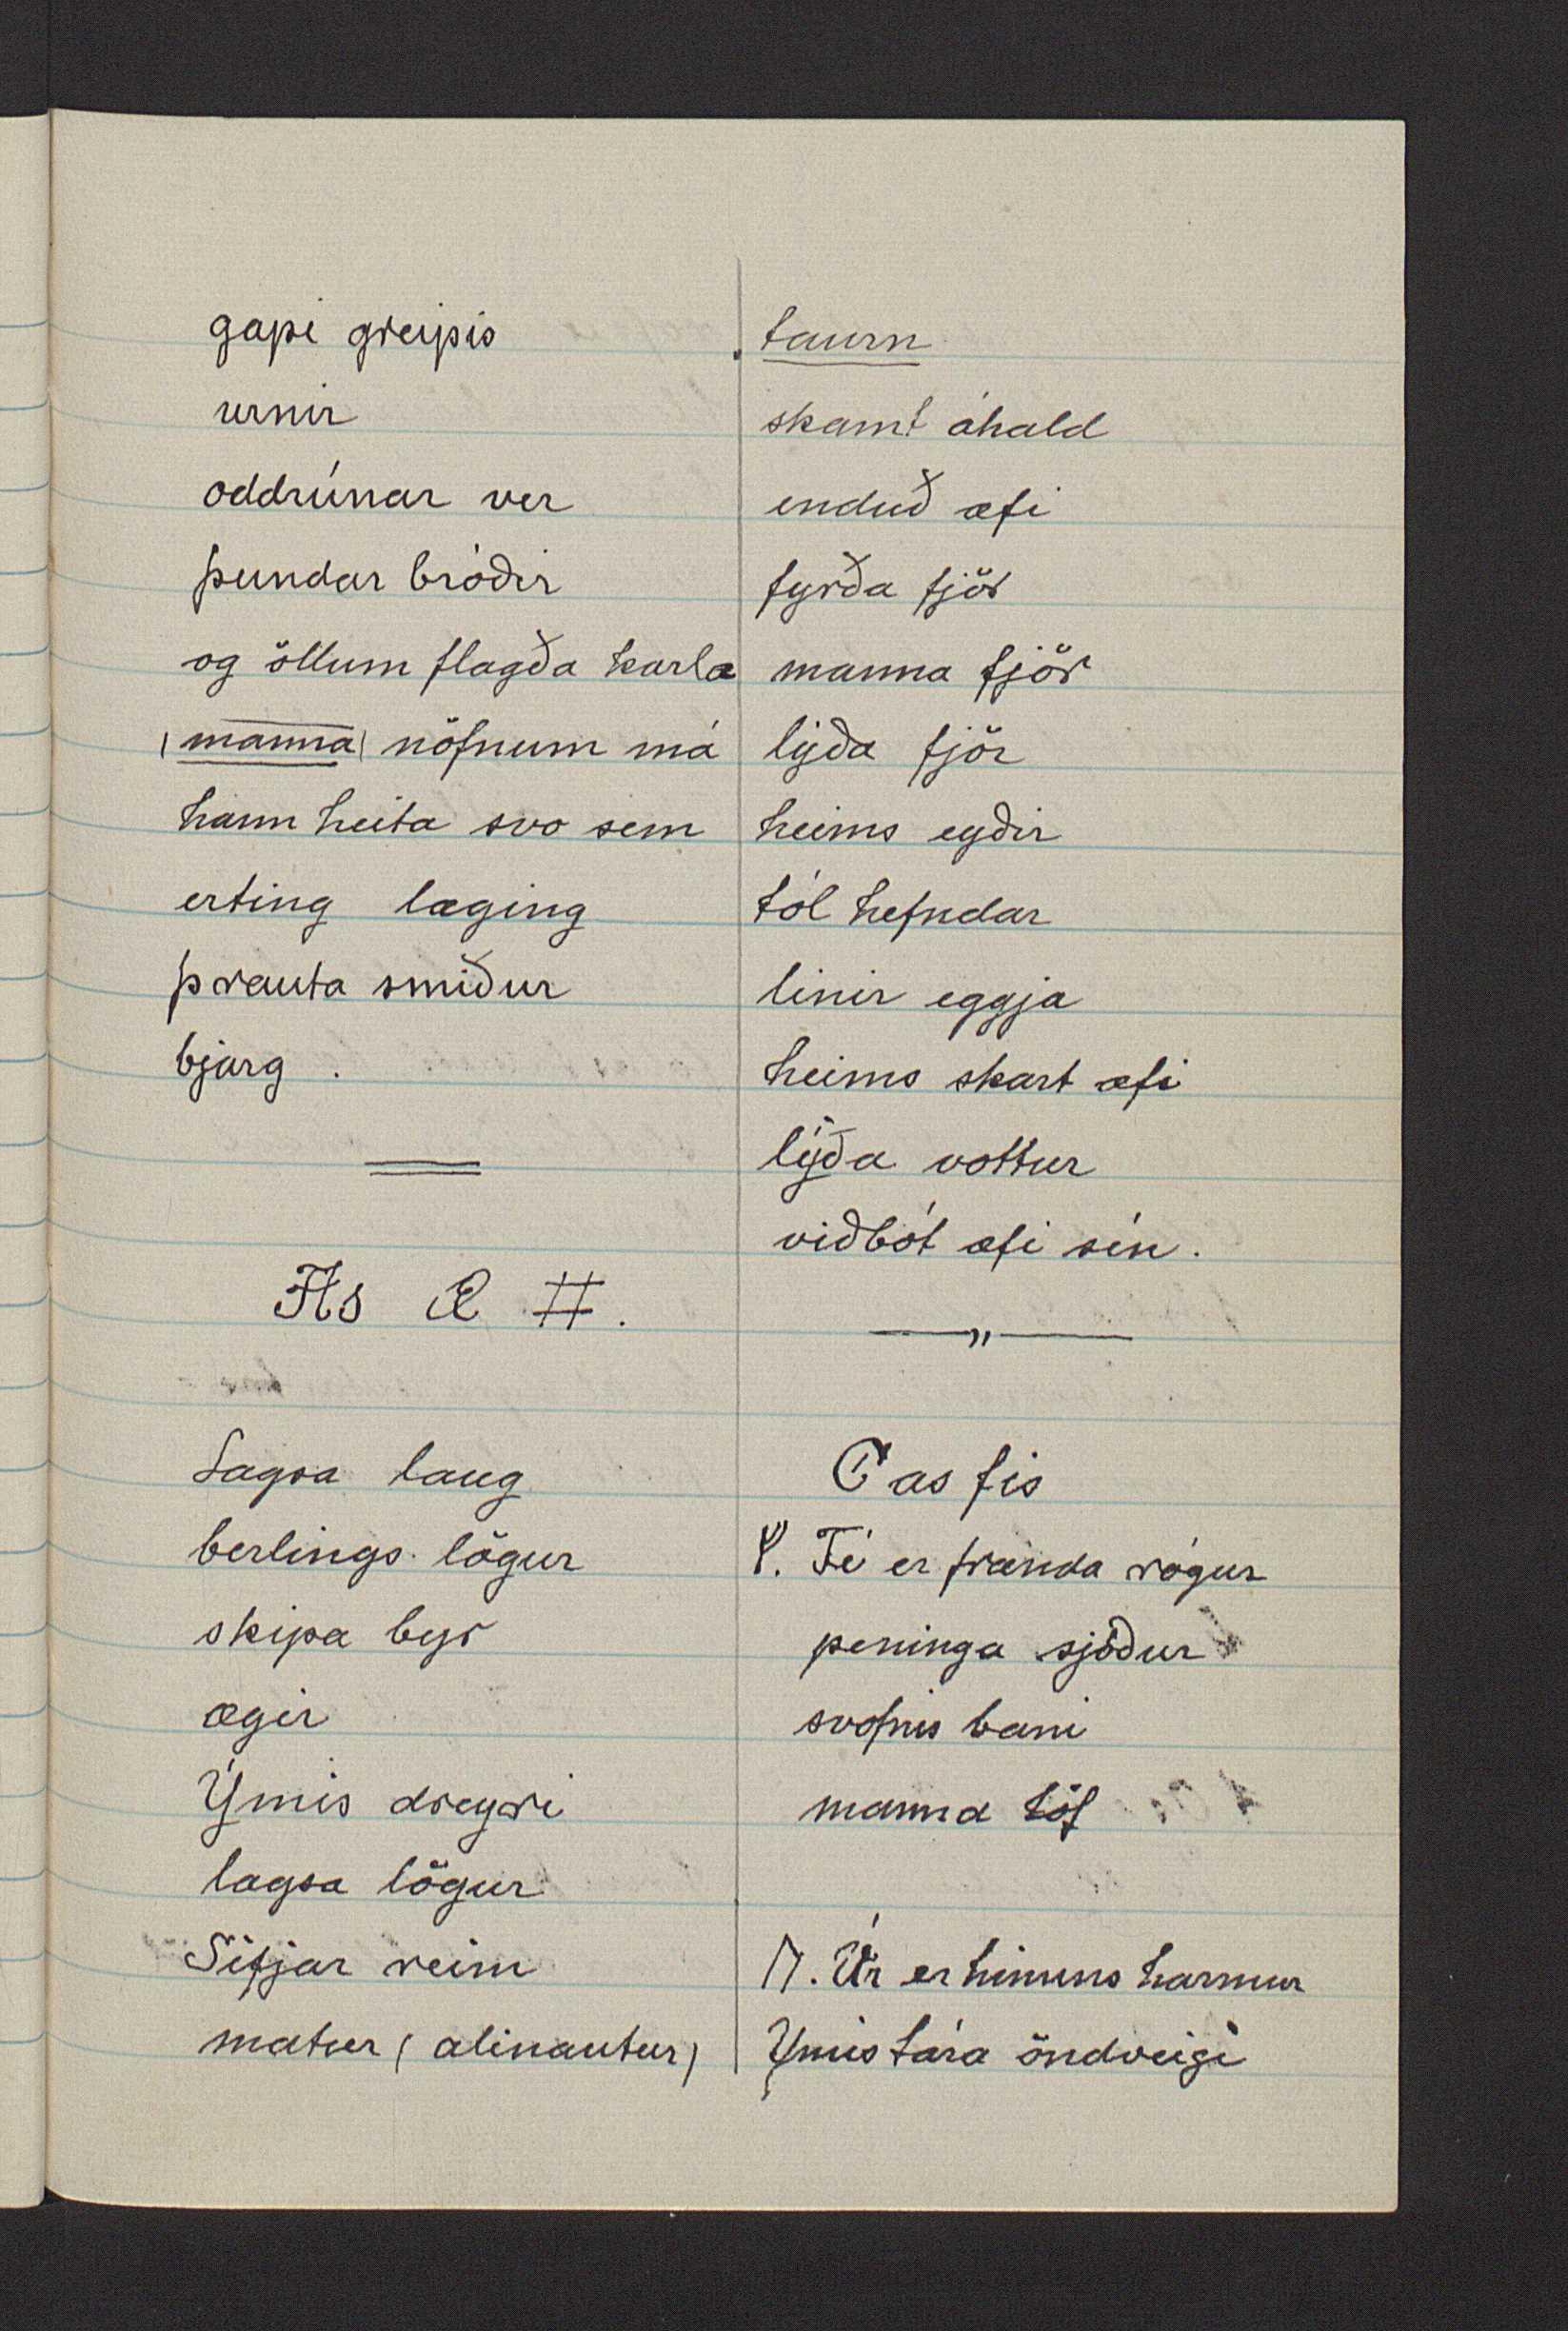 gapi greipis
urnir
oddrúnar ver
þundar bróðir
og öllum flagða karla
(manna) nöfnum má
hann heita svo sem
erting læging
þrauta smiður
bjarg .
As Æ #.
Lagsa laug
berlings lögur
skipa byr
ægir
Ýmis dreyri
lagsa lögur
Sifjar reim
matur (alinautur)
taurn
skamt áhald
enduð æfi
fyrða fjör
manna fjör
lýða fjör
heims eyðir
tól hefndar
linir eggja
heims skart æfi
lýða vottur
viðbót æfi sín.
—„—
Cas fis
ᛘ. Fé er frænda rógur
peninga sjóður
svofnis bani
manna töf
ᚢ. Úr er himins harmur
Ymis tára öndveigi